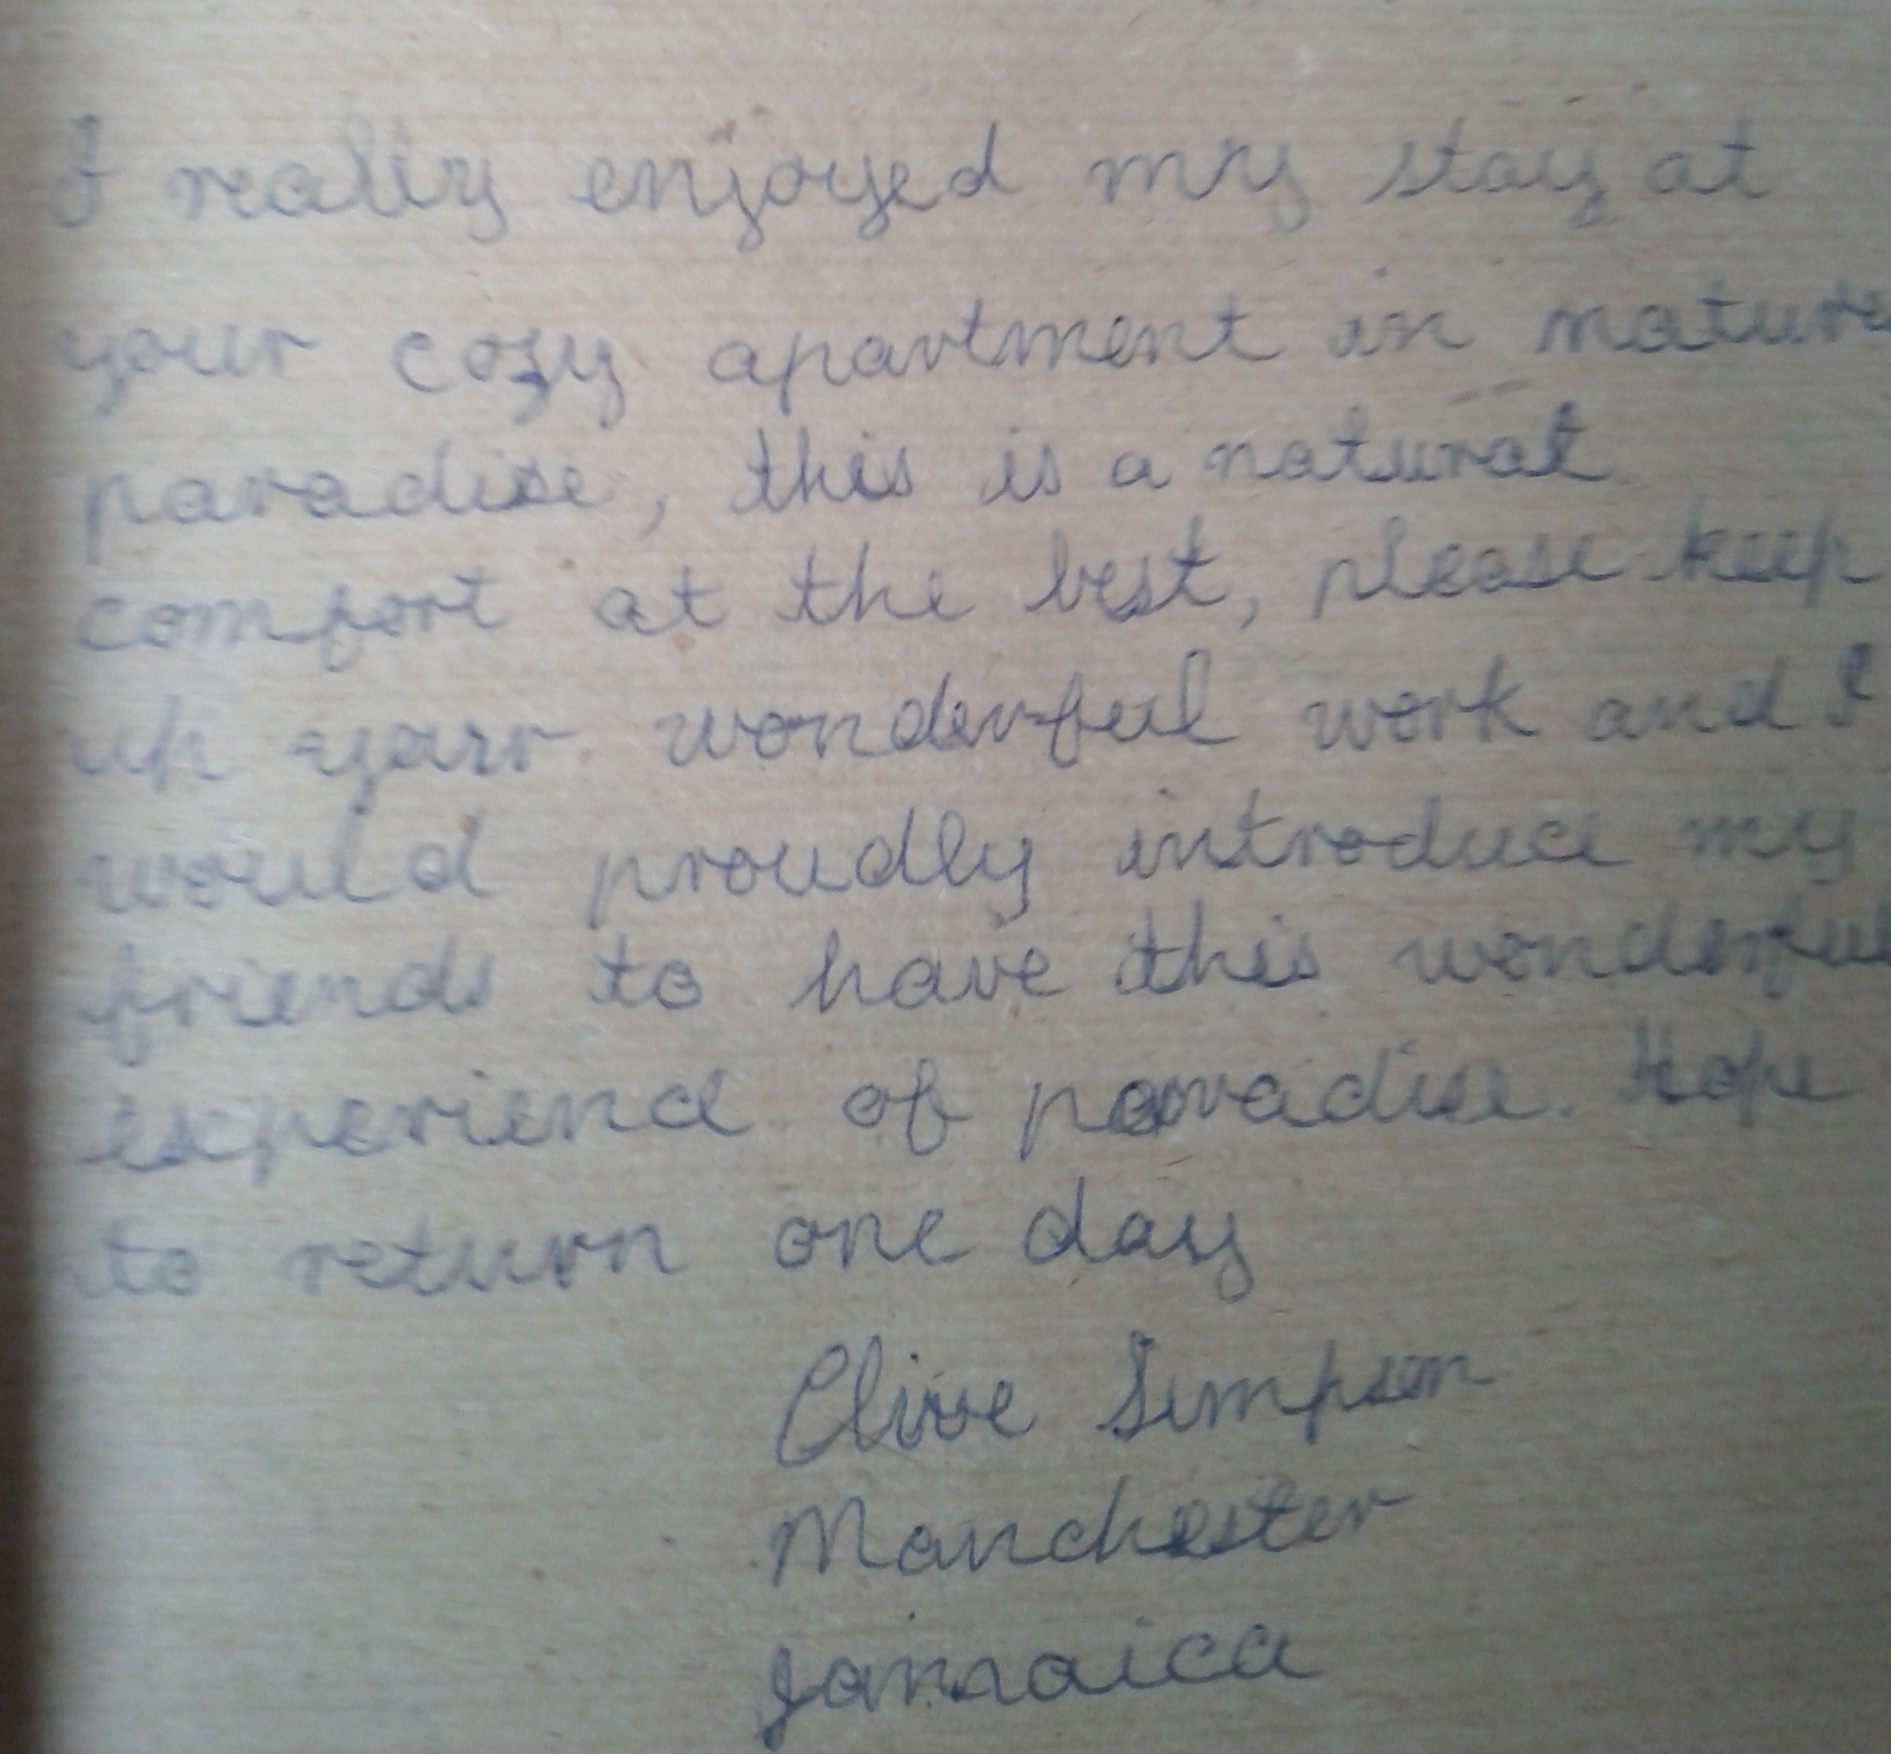 I really enjoyed my stay at
your cozy apartment in nature
paradise, this is a natural
comfort at the best, please keep
up your wonderful work and I
would proudly introduce my
friends to have this wonderful
experience of paradise. Hope
to return one day
Clive Simpson
Manchester
Jamaica